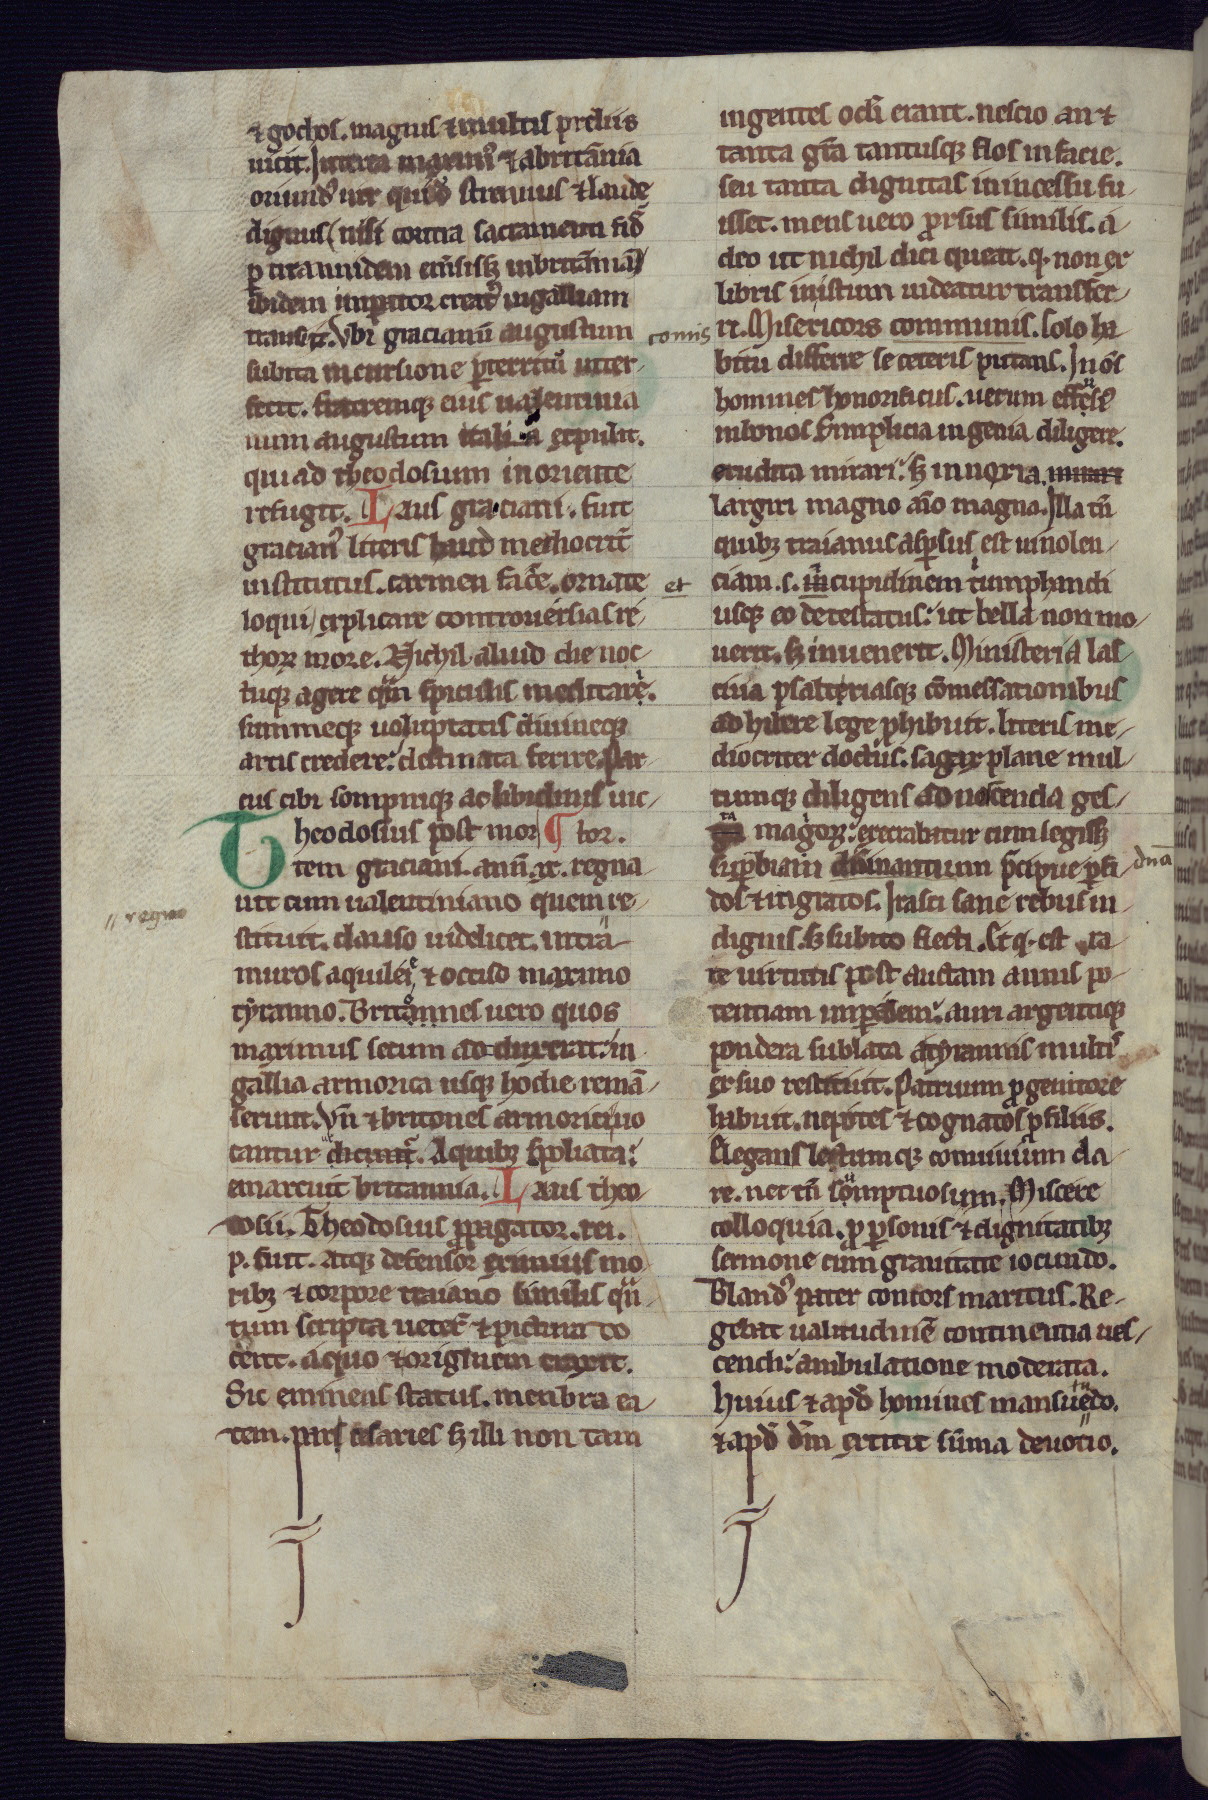 ⁊ gothos. magnis ⁊ multis preliis
uicit. Interea maximꝰ ⁊ abritānia
oriundꝰ uir quidē strenuus ⁊ laude
dignus (nisi contra sacramenti fidē
ꝑ tirannidem emsisꝫ inbritānia)
ibidem inꝑator creatꝰ ingalliam
transiit. Vbi gracianū augustum
subita incursione ꝑterritū inter-
fecit. fratremqꝫ eius ualentinia
num augustum italia expulit.
qui ad theodosium in oriente
refugit. Laus graciani. fuit
gracianꝰ literis haud methocrit̄
institutus. carmen fac̄e. ornate
loqui/ explicare controuersias re-
thorꝝ more. Nichil aliud die noc
tuqꝫ agere qͣm spiculis meditare.
summeqꝫ uoluptatis diuineqꝫ
artis credere: destinata ferire. Par-
cus cibi sompniqꝫ ac libidinis uic-
Theodosius post mor ¶ tor.
tem graciani. ann̄. xi. regna
uit cum ualentiniano quem re-
regno
stituit. clauso uidelicet. intra
muros aquileie ⁊ occiso maximo
tyranno. Britannnes uero quos
maximus secum adduxerat: in
gallia armorica usqꝫ hodie remā-
serunt. Vn̄ ⁊ britones armorici uo
cantur dicunt᷑. A quibꝫ spoliata:
emarcuit britannia. Laus theo-
dosii. Theodosius ꝓpagator. rei.
p. fuit. atqꝫ defensor eximius mo
ribꝫ ⁊ corpore traiano similis qͣn
tum scripta ueterꝝ ⁊ pictura do
cent. aquo ⁊ originem traxit.
Sic eminens status. membra ea
dem. par cesaries sꝫ illi non tam
ingentes oc̄li erant. nescio an ⁊
tanta gr̄a tantusqꝫ flos in facie.
seu tanta dignitas inincessu fu
isset. mens uero ꝓrsus similis. a
deo ut nichil dici queat. q. non ex
libris inistum uideatur transfer-
ri. Misericors communis. solo ha
comis
bitu differre se ceteris putans. In oīs
homines honorificus. uerum effusꝰ
inbonos. Simplicia ingenia diligere.
erudita mirari: sꝫ innoxia. mirari
largiri magno aīo magna. Illa tn̄
quibꝫ traianus aspersus est uinolen-
et
ciam. s. cupidinem triumphandi
usqꝫ eo detestatus: ut bella non mo-
uerit. sꝫ inuenerit. Ministeria las-
ciua psalteriasqꝫ cōmessationibus
adhibere lege ꝓhibuit. literis me-
diocriter doctus. sagax plane mul-
tumqꝫ diligens ad noscenda ges-
ta magorꝝ: execrabatur cum legisset
suꝑbiam dominantium p̄cipue ꝑfi
dn̄a
dos ⁊ ingratos. Irasci sane rebus in-
dignis. sꝫ subito flecti. Et q. est ra-
re uirtutis post auctam annis po-
tentiam imꝑialem: auri argentiqꝫ
pondera sublata atyrannis multꝭ
ex suo restituit. Patruum ꝓgenitore
habuit. nepotes ⁊ cognatos ꝓ filiis.
Elegans letumqꝫ conuiuium da-
re. nec tn̄ sumptuosum. Miscere
colloquia. ꝓ ꝑsonis ⁊ dignitatibꝫ
sermone cum grauitate iocundo.
Blandꝰ pater consors maritus. Re-
gebat ualitudinē continentia ues-
cendi: ambulatione moderata.
Huius ⁊ apd̄ homines mansuetudo.
⁊ apd̄ dm̄ extitit sum̄a deuotio.